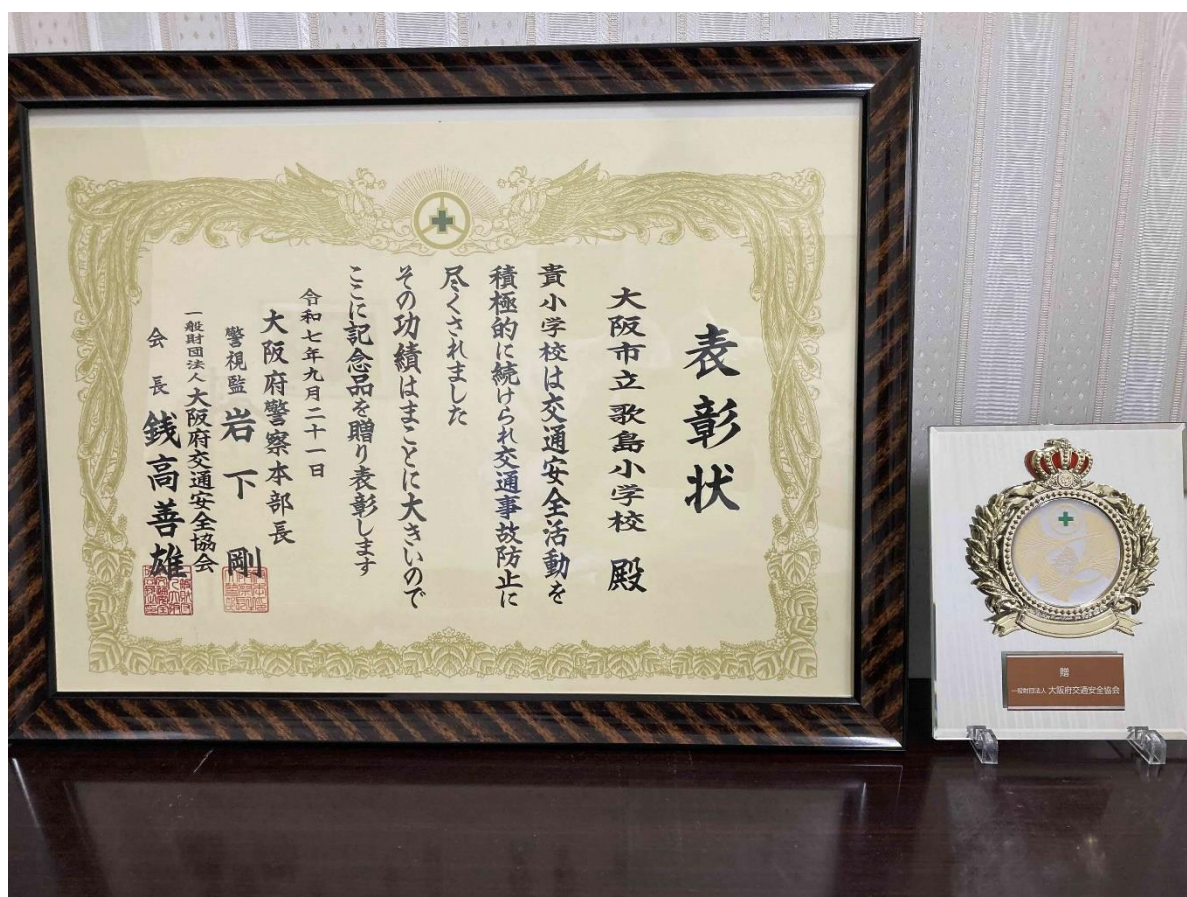 表彰状
大阪市立歌島小学校 殿
貴小学校は交通安全活動を
積極的に続けられ交通事故防止に
尽くされました
その功績はまことに大きいので
ここに記念品を贈り表彰します
令和七年九月二十一日
大阪府警察本部長
警視監 岩下 剛
一般財団法人大阪府交通安全協会
会長 銭高善雄
贈
一般財団法人 大阪府交通安全協会